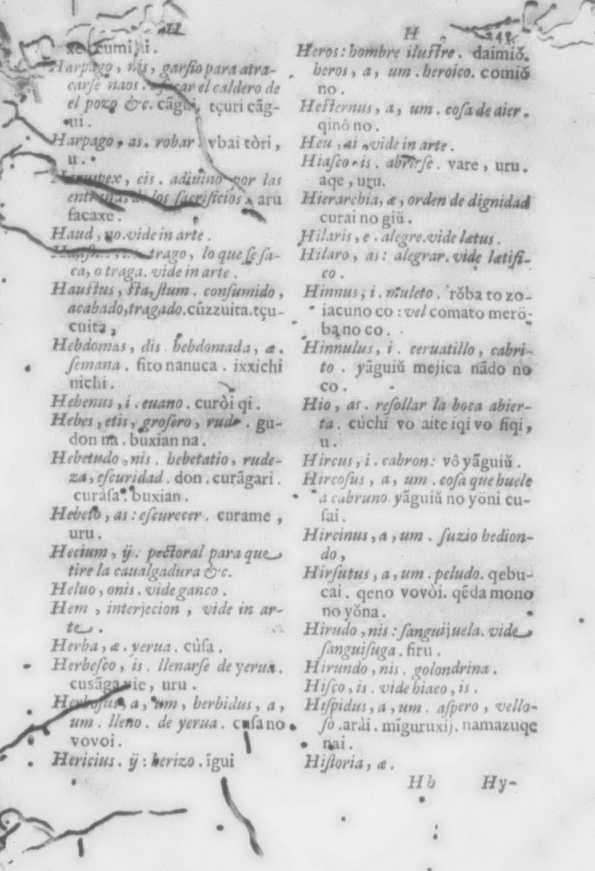 H
xe. cumi, i.
Harpago, nis, garfio para atra-
carse naos. sacar el caldero de
el pozo &c. cãgui, tçuri cãg-
ui.
Harpago, as. robar. vbai tòri,
u.
Haruspex, cis. adiuino por las
entrañas de los sacrificios. aru
facaxe.
Haud, no. vide in arte.
trago, lo que se sa-
ca, o traga. vide in arte.
Haustus, sta, stum. consumido,
acabado, tragado. cùzzuita. tçu-
cuita,
Hebdomas, dis hebdomada, æ.
semana. fito nanuca. ixxichi
nichi.
Hebenus, i. euano. curòi qi.
Hebes, etis, grosero, rude. gu-
don na. buxian na.
Hebetudo, nis. hebetatio, rude-
za, escuridad. don. curãgari.
curàsa. buxian.
Hebeto, as: escurecer. curame,
uru.
Hecium, ij. pectoral para que
tire la caualgadura &c.
Heluo, onis. vide ganeo.
Hem, interjecion, vide in ar-
te.
Herba, æ. yerua. cùsa.
Herbesco, is. llenarse de yerua.
cusãga vie, uru.
Herbosus, a, um, herbidus, a,
um. lleno. de yerua. cusa no
vovoi.
Hericius. ij: herizo. igui
H
Heros: hombre ilustre. daimiŏ.
heros, a, um. heroico. comiŏ
no.
Hesternus, a, um. cosa de aier.
qinò no.
Heu, ai, vide in arte.
Hiasco, is. abrirse. vare, uru.
aqe, uru.
Hierarchia, æ, orden de dignidad
curai no giŭ.
Hilaris, e. alegre. vide lætus.
Hilaro, as: alegrar. vide lætifi-
co.
Hinnus, i. muleto. rŏba to zo-
iacuno co: vel comato merŏ-
ba no co.
Hinnulus, i. ceruatillo, cabri-
to. yãguiŭ mejica nãdo no
co.
Hio, as. resollar la boca abier-
ta. cùchi vo aite iqi vo fiqi,
u.
Hircus, i. cabron: vô yãguiŭ.
Hircosus, a, um. cosa que huele
a cabruno. yãguiŭ no yŏni cu-
sai.
Hircinus, a, um. suzio hedion-
do,
Hirsutus, a, um. peludo. qebu-
cai. qeno vovòi. qẽda mono
no yŏna.
Hirudo, nis: sanguijuela. vide
sanguisuga. firu.
Hirundo, nis. golondrina.
Hisco, is. vide hiaeo, is.
Hispidus, a, um. aspero, vello-
so. arài. mĩguruxij. namazuqe
nai.
Historia, æ.
Hb Hy-